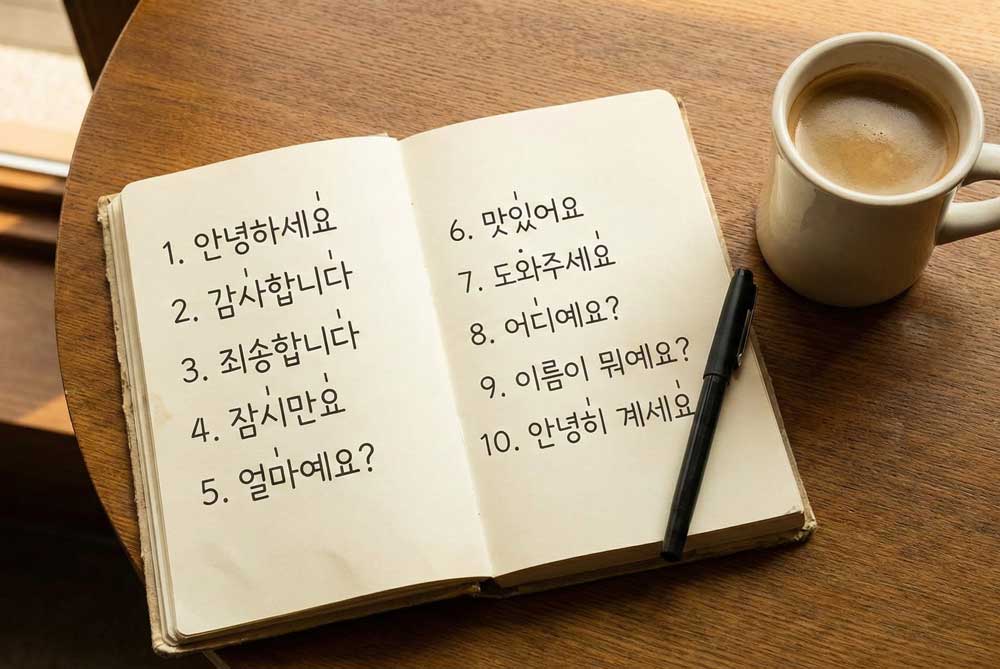 1. 안녕하세요
2. 감사합니다
3. 죄송합니다
4. 잠시만요
5. 얼마예요?
6. 맛있어요
7. 도와주세요
8. 어디예요?
9. 이름이 뭐예요?
10. 안녕히 계세요